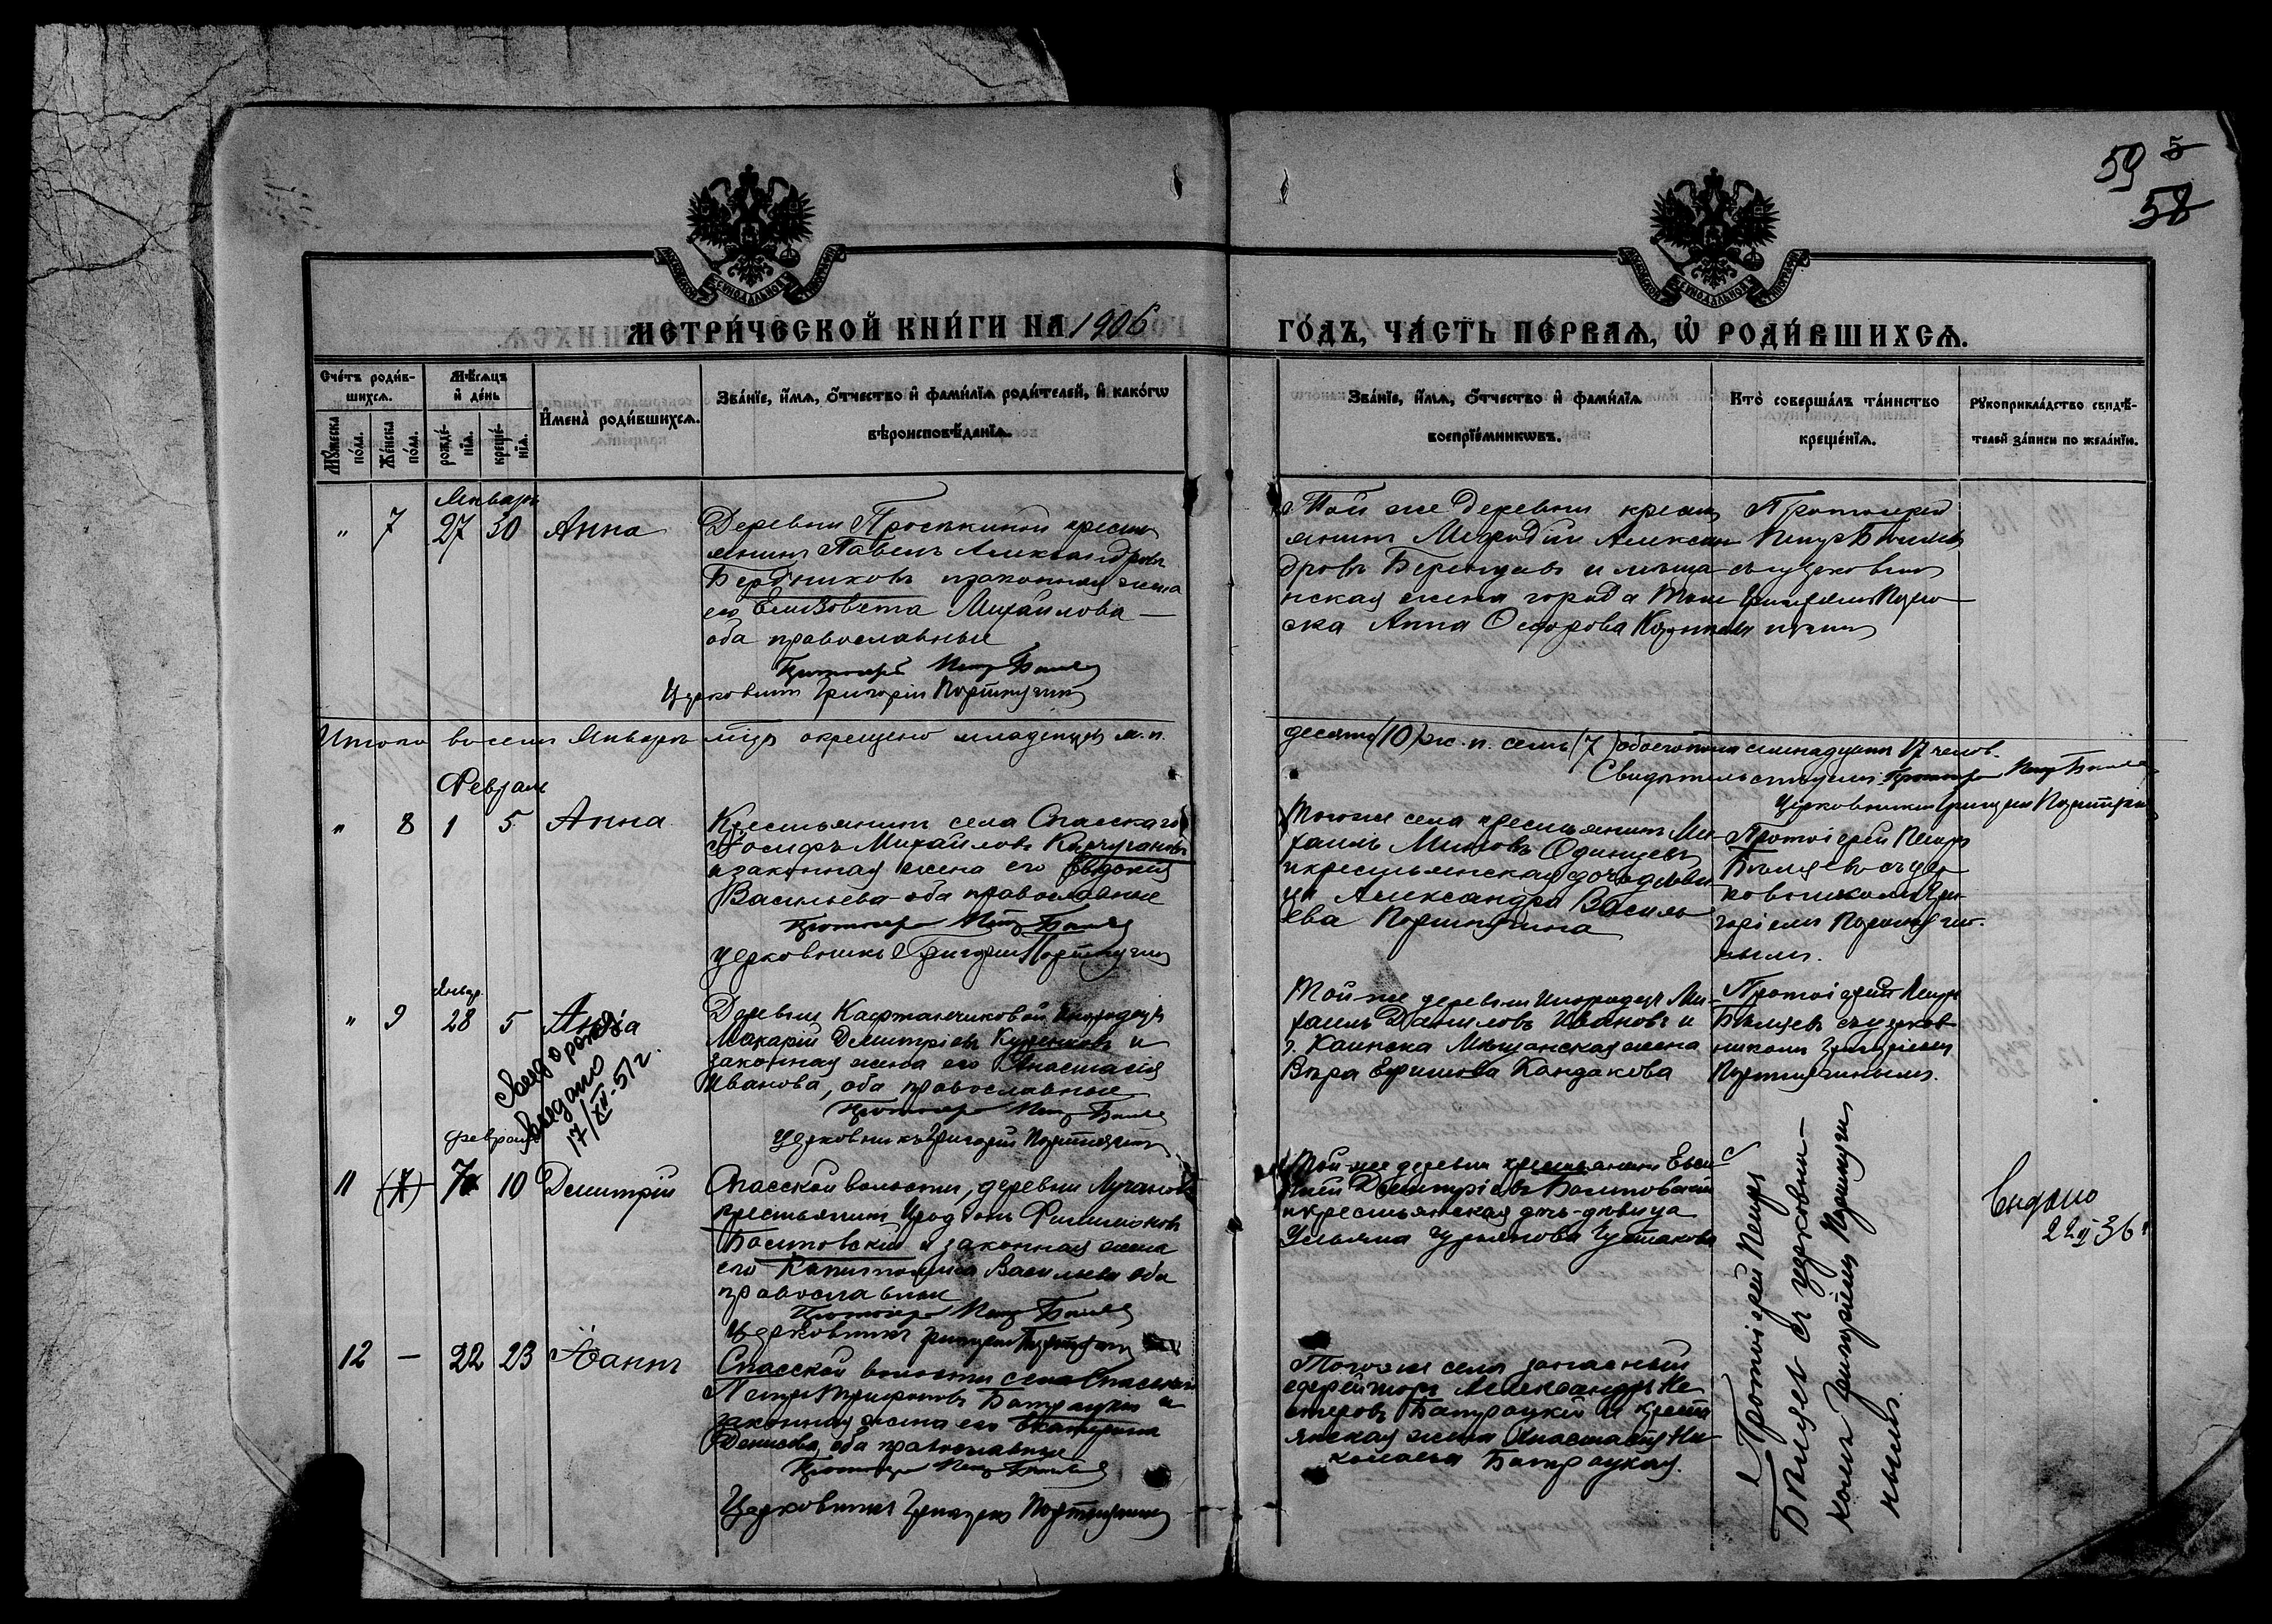 59 5
58
МЕТРИ́ЧЕСКОЙ КНИ́ГИ НА 1906 ГО́ДЪ, ЧА́СТЬ ПЕ́РВАѦ, Ѡ҆ РОДИ́ВШИХСѦ.
Сче́тъ роди́в-
шихсѧ.
Мꙋ́жеска по́ла.
Же́нска по́ла.
Мѣ́сѧцъ и҆ де́нь
рожде́-
нїѧ.
креще́-
нїѧ.
И҆мена̀ роди́вшихсѧ.
Зва́нїе, и҆́мѧ, ѻ҆́тчество и҆ фами́лїѧ роди́телей, и҆ како́гѡ
вѣроисповѣ́данїѧ.
Зва́нїе, и҆́мѧ, ѻ҆́тчество и҆ фами́лїѧ
воспрїе́мникѡвъ.
Кто̀ соверша́лъ та́инство
креще́нїѧ.
Рꙋкоприкла́дство свидѣ́-
телей за́писи по жела́нїю.
Январь
" 7 27 30 Анна
Деревни Просѣкиной кресть
янинъ Павелъ Александровъ
Бердниковъ и законная жена
его Елизовета Михайлова
оба православные
Протоіерей Петръ Бѣляевъ
Церковникъ Григорій Портнягинъ
Той же деревни кресть
янинъ Мефодій Алексан
дровъ Беренцевъ и мѣща
нская жена города Том
ска Анна Ѳедорова
Протоіерей
Петръ Бѣляевъ
съ церковни
Григоріемъ Портня
гинымъ
Итого въ семъ Январѣ мцѣ окрещено младенцевъ м. п.
десять (10) ж. п. семь (7) обоего пола семнадцать 17 челов.
Свидѣтельствуемъ Протоіерей Петръ Бѣляевъ
Церковникъ Григорій Портнягинъ
Февраль
" 8 1 5 Анна
Крестьянинъ села Спасскаго
Іосифъ Михайловъ Карчугановъ
и законная жена его Евдокия
Васильева оба православные
Протоіерей Петръ Бѣляевъ
Церковникъ Григорій Портнягинъ
Того же села крестьянинъ Ми-
хаилъ Одинцевъ
и крестьянская дочь дѣви
ца Александра Василь
ева Портнягина
Протоіерей Петръ
Бѣляевъ съ цер
ковникомъ Гри-
горіемъ Портняги-
нымъ.
Январ.
" 9 28 5
Свид о рожд
выдано
17/XII-51г.
Деревни Кафтанчиковой Инородецъ
Макарій Димитріевъ Куценковъ и
законная жена его Анастасія
Иванова, оба православные
Протоіерей Петръ Бѣляевъ
Церковникъ Григорій Портнягинъ
Той-же деревни инородецъ Ми-
хаилъ Даниловъ Ивановъ и
г. Каинска Мѣщанская жена
Вѣра Ефимова Кандакова
Протоіерей Петръ
Бѣляевъ съ церков
никомъ Григоріемъ
Портнягинымъ.
Февраль
11 (7) 7 10 Димитрій
Спасской волости, деревни Лучановой
крестьянинъ Иродіонъ Филимоновъ
Баситовскій и законная жена
его Капитолина Васильева оба
православные
Протоіерей Петръ Бѣляевъ
Церковникъ Григорій Портнягинъ
Той-же деревни крестьянинъ Евсе-
вій Димитріевъ
и крестьянская дочь-дѣвица
Ульяна Чустакова
Выдано
22 II 36 г
12 — 22 23 Іоаннъ
Спасской волости села Спасскаго
Петръ Трифоновъ Батрацкій и
законная жена его Екатерина
Денисова, оба православные
Протоіерей Петръ Бѣляевъ
Церковникъ Григорій Портнягинъ
Того же села запасный
ефрейторъ Александръ Не
стеровъ Батрацкій и кресть
янская жена Анастасія Ни
колаева Батрацкая.
Протоіерей Петръ
Бѣляевъ съ церковни-
комъ Григоріемъ Портняги
нымъ